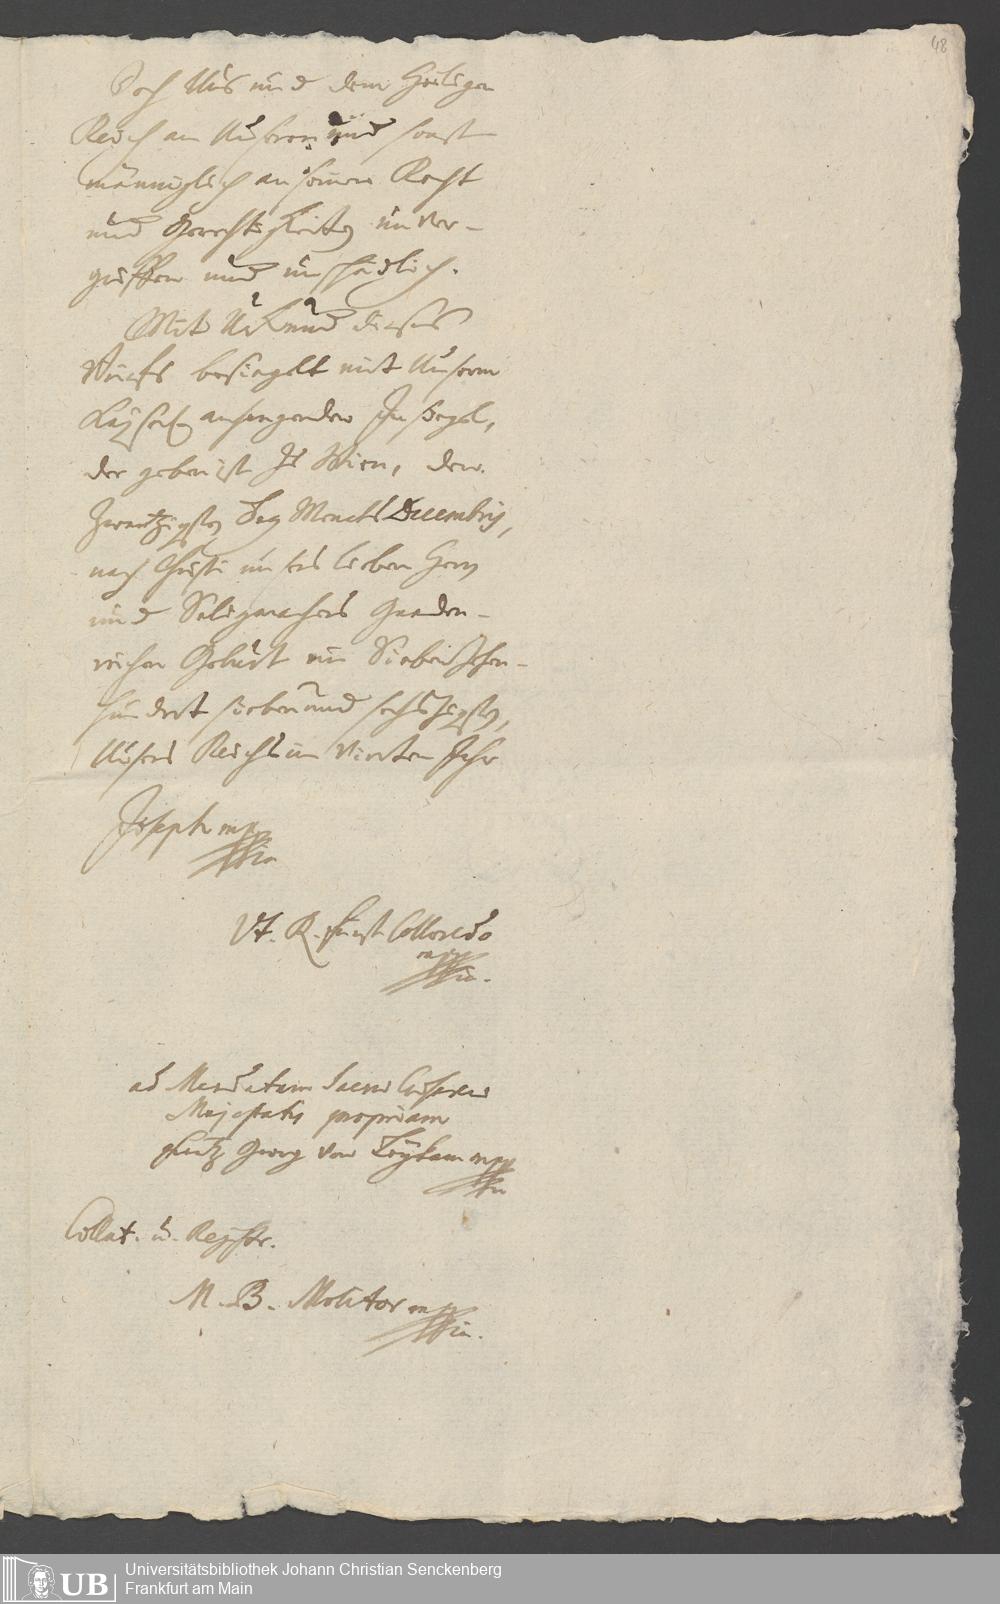 48
Doch Uns und dem Heiligen
Reich an Unseren und sonst
männiglich an seinem Recht
und Gerechtigkeiten unver-
griffen und unschädlich.
Mit Urkund dieses
Briefs besiegelt mit Unserm
Kayserl. anhangenden Insiegel,
der geben ist zu Wien, den
Zwantzigsten Tag Monaths Decembris,
nach Christi unsers lieben Herrn
und Seligmachers Gnaden-
reichen Geburt im Siebenzehen-
hundert sieben und sechszigsten,
Unsers Reichs im Vierten Jahr
Joseph mppria
Vt. R. Fürst Colloredo
mppria.
ad Mandatum Sacae Caesareae
Majestatis proprium
Frantz Georg von Leykam mppria
Collat. u. Registr.
M. B. Molitor mppria.
UB
Universitätsbibliothek Johann Christian Senckenberg
Frankfurt am Main